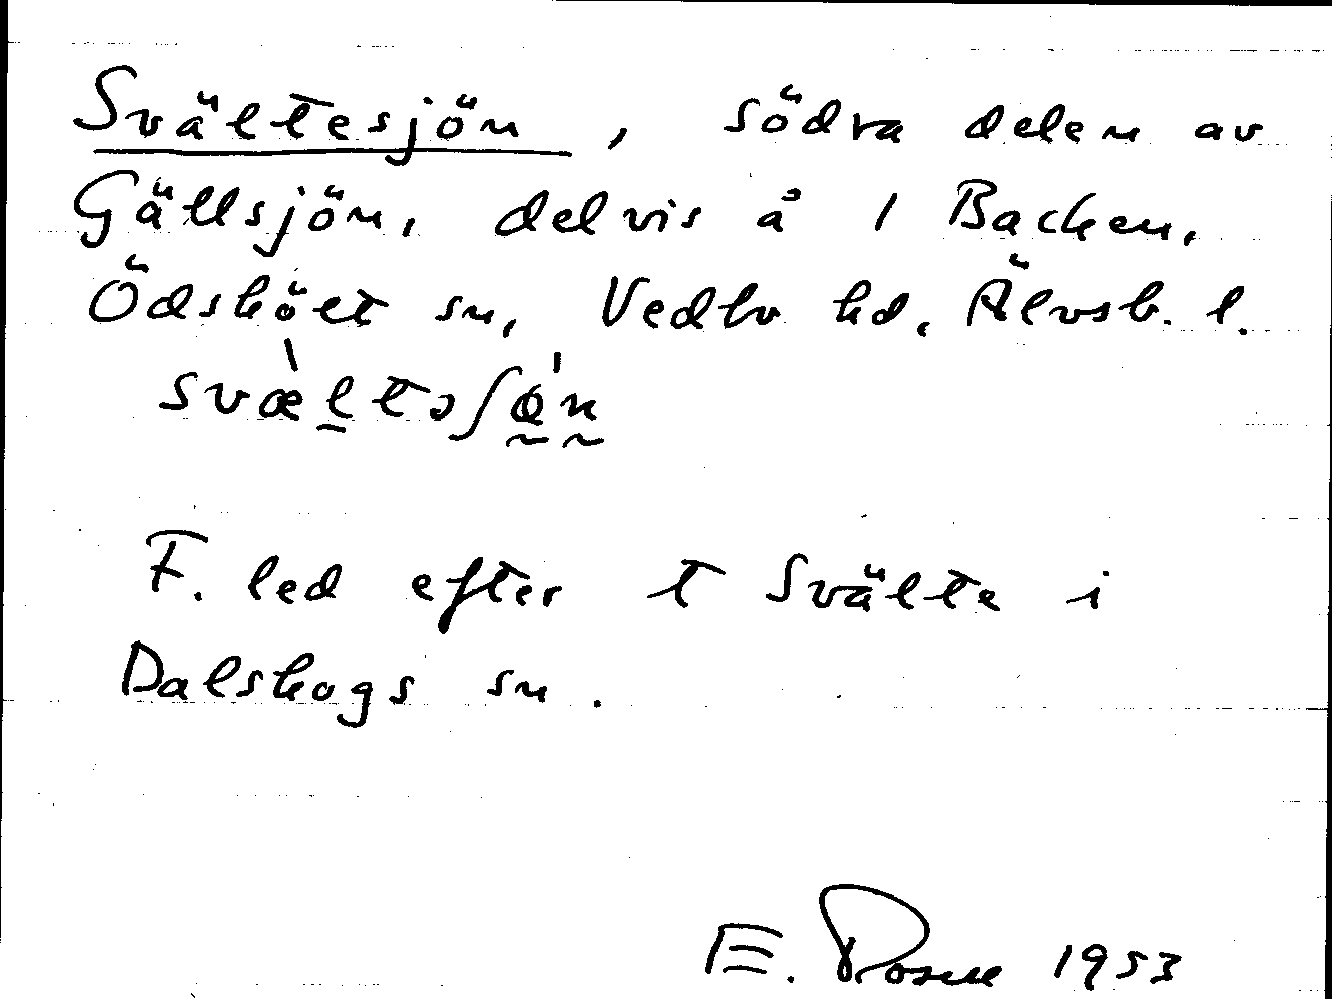 Svältesjön, södra delen av
Gällsjön, delvis å 1 Backen,
Ödsköit sn, Vedbo hd, Älvsb. l.
svæ̀ltəʃǿ̰n̰
F. led efter t Svälte i
Dalskogs sn.
E. Rosell 1953